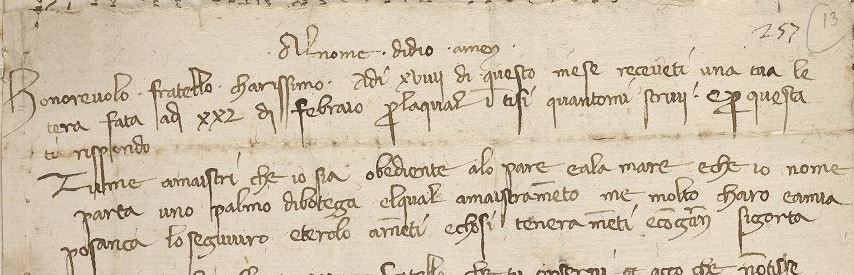 257 13
Al nome · didio · amen ·
Honorevolo · fratello · charissimo · Adi xviiii di questo mese receveti una tua le
tera fata adi xxi di febraio p laqual i tisi quantomi scrivi · E p questa
ti rispondo
Tu me amaistri che io sia obediente alo pare eala mare eche io nome
parta uno palmo dibotega elqual amaistrameto me molto charo eamia
posança lo seguiviro eterolo ameti echosi tenera meti ecogra sigorta